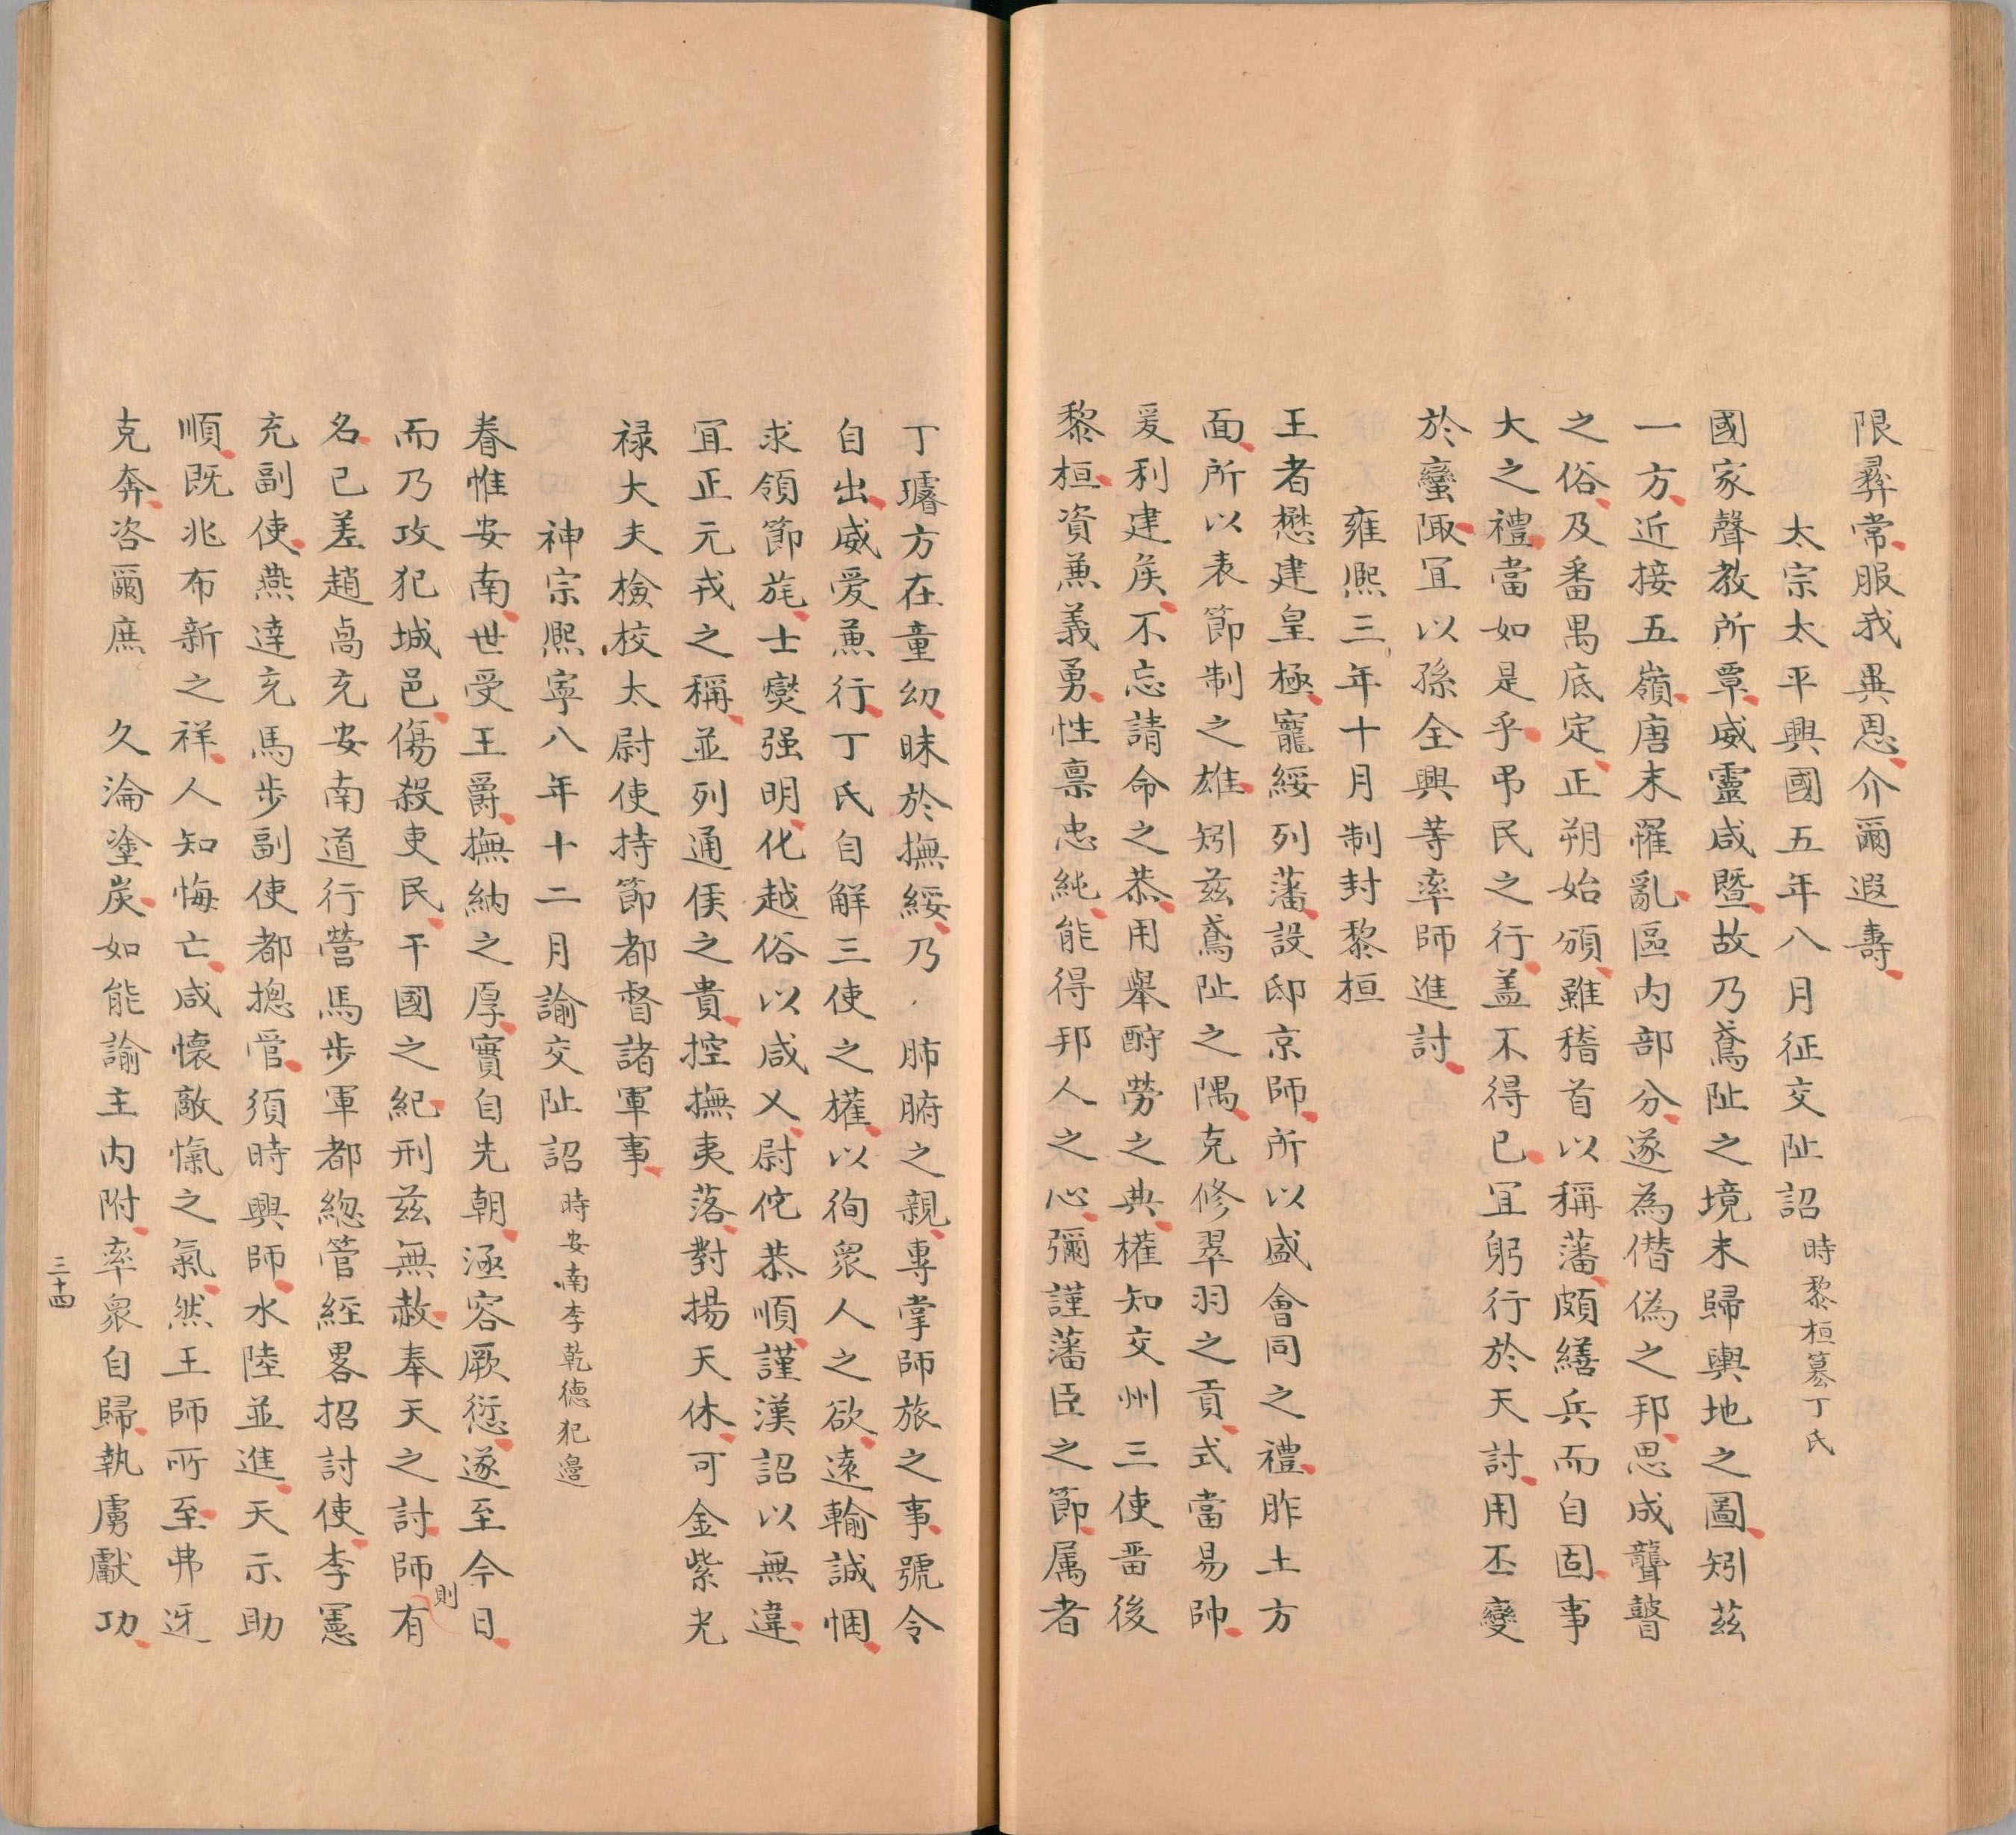 限彞常服我異恩介爾遐壽
太宗太平興國五年八月征交阯詔時黎桓簒丁氏
國家聲教所覃威靈咸暨故乃鳶阯之境未歸輿地之圖矧茲
一方近接五嶺唐末罹亂區内部分遂為僣偽之邦思成聾瞽
之俗及番禺底定正朔始頒雖稽首以稱藩頗繕兵而自固事
大之禮當如是乎弔民之行盖不得已宜躬行於天討用丕變
於蠻陬宜以孫全興等率師進討
雍熈三年十月制封黎桓
王者懋建皇極寵綏列藩設邸京師所以盛會同之禮胙土方
面所以表節制之雄矧茲鳶阯之隅克修翠羽之貢式當易帥
爰利建矦不忘請命之恭用舉酧勞之典權知交州三使畨後
黎桓資兼義勇性禀忠純能得邦人之心彌謹藩臣之節属者
丁璿方在童幼昧於撫綏乃肺腑之親專掌師旅之事號令
自出威爱兼行丁氏自解三使之權以徇衆人之欲遠輸誠悃
求領節旄士燮强明化越俗以咸乂尉佗恭順謹漢詔以無違
冝正元戎之稱並列通侯之貴控撫夷落對揚天休可金紫光
禄大夫檢校太尉使持節都督諸軍事
神宗熈寧八年十二月諭交阯詔時安南李乾德犯邊
眷惟安南世受王爵撫納之厚實自先朝涵容厥愆遂至今日
而乃攻犯城邑傷殺吏民干國之紀刑茲無赦奉天之討師則有
名已差趙卨充安南道行營馬步軍都緫管經畧招討使李憲
充副使燕達充馬步副使都摠管須時興師水陸並進天示助
順既兆布新之祥人知悔亡咸懷敵愾之氣然王師所至弗迓
克奔咨爾庶 久淪塗炭如能諭主内附率衆自歸執虜獻功
三十四